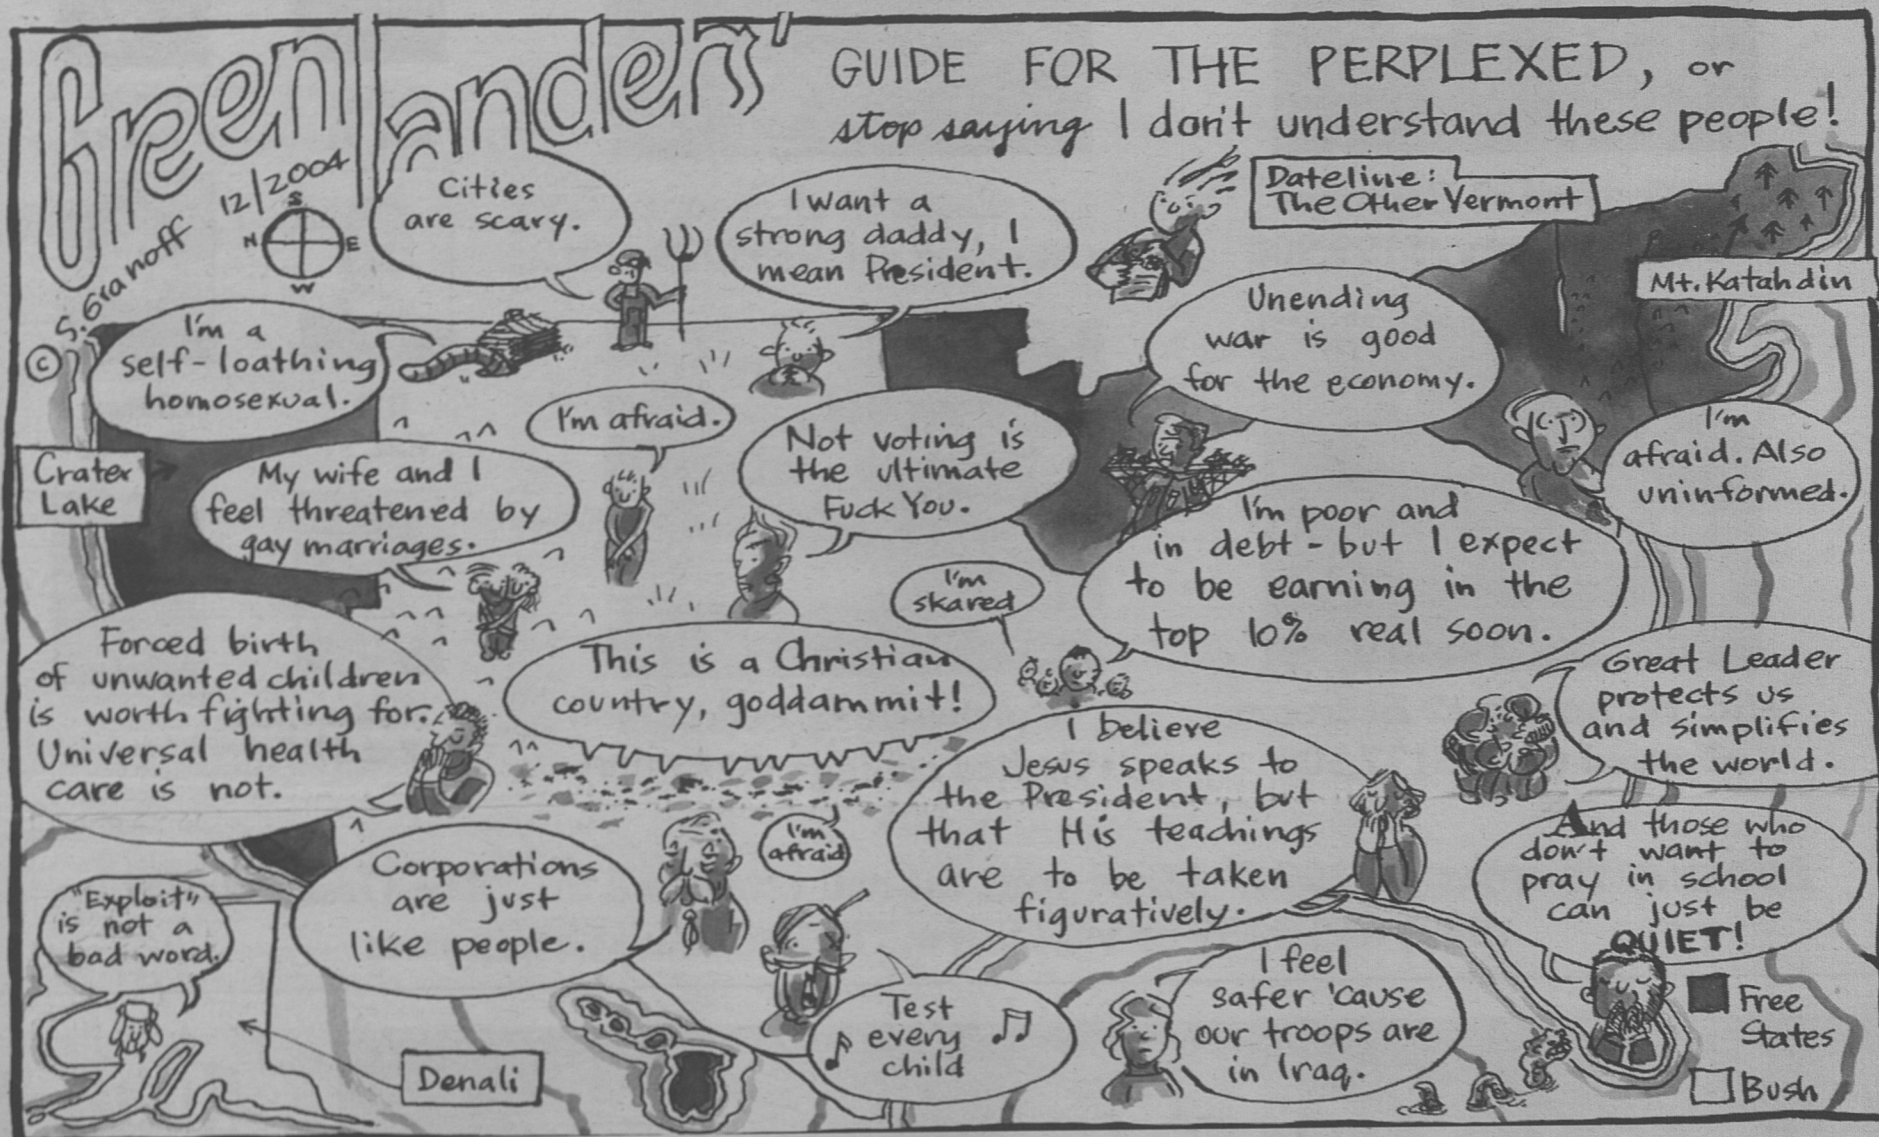 Greenlanders' GUIDE FOR THE PERPLEXED, or
stop saying I don't understand these people!
12/2004
© S. Granoff
S
N E
W
Cities
are scary.
I want a
strong daddy, I
mean President.
Dateline:
The Other Vermont
Mt. Katahdin
I'm a
self-loathing
homosexual.
Unending
war is good
for the economy.
I'm afraid.
Not voting is
the ultimate
Fuck You.
I'm
afraid. Also
uninformed.
Crater
Lake
My wife and I
feel threatened by
gay marriages.
I'm poor and
in debt - but I expect
to be earning in the
top 10% real soon.
I'm
skared
Forced birth
of unwanted children
is worth fighting for.
Universal health
care is not.
This is a Christian
country, goddammit!
Great Leader
protects us
and simplifies
the world.
I believe
Jesus speaks to
the President, but
that His teachings
are to be taken
figuratively.
I'm
afraid
And those who
don't want to
pray in school
can just be
QUIET!
Corporations
are just
like people.
"Exploit"
is not a
bad word.
Test
every
child
I feel
safer 'cause
our troops are
in Iraq.
Denali
Free
States
Bush